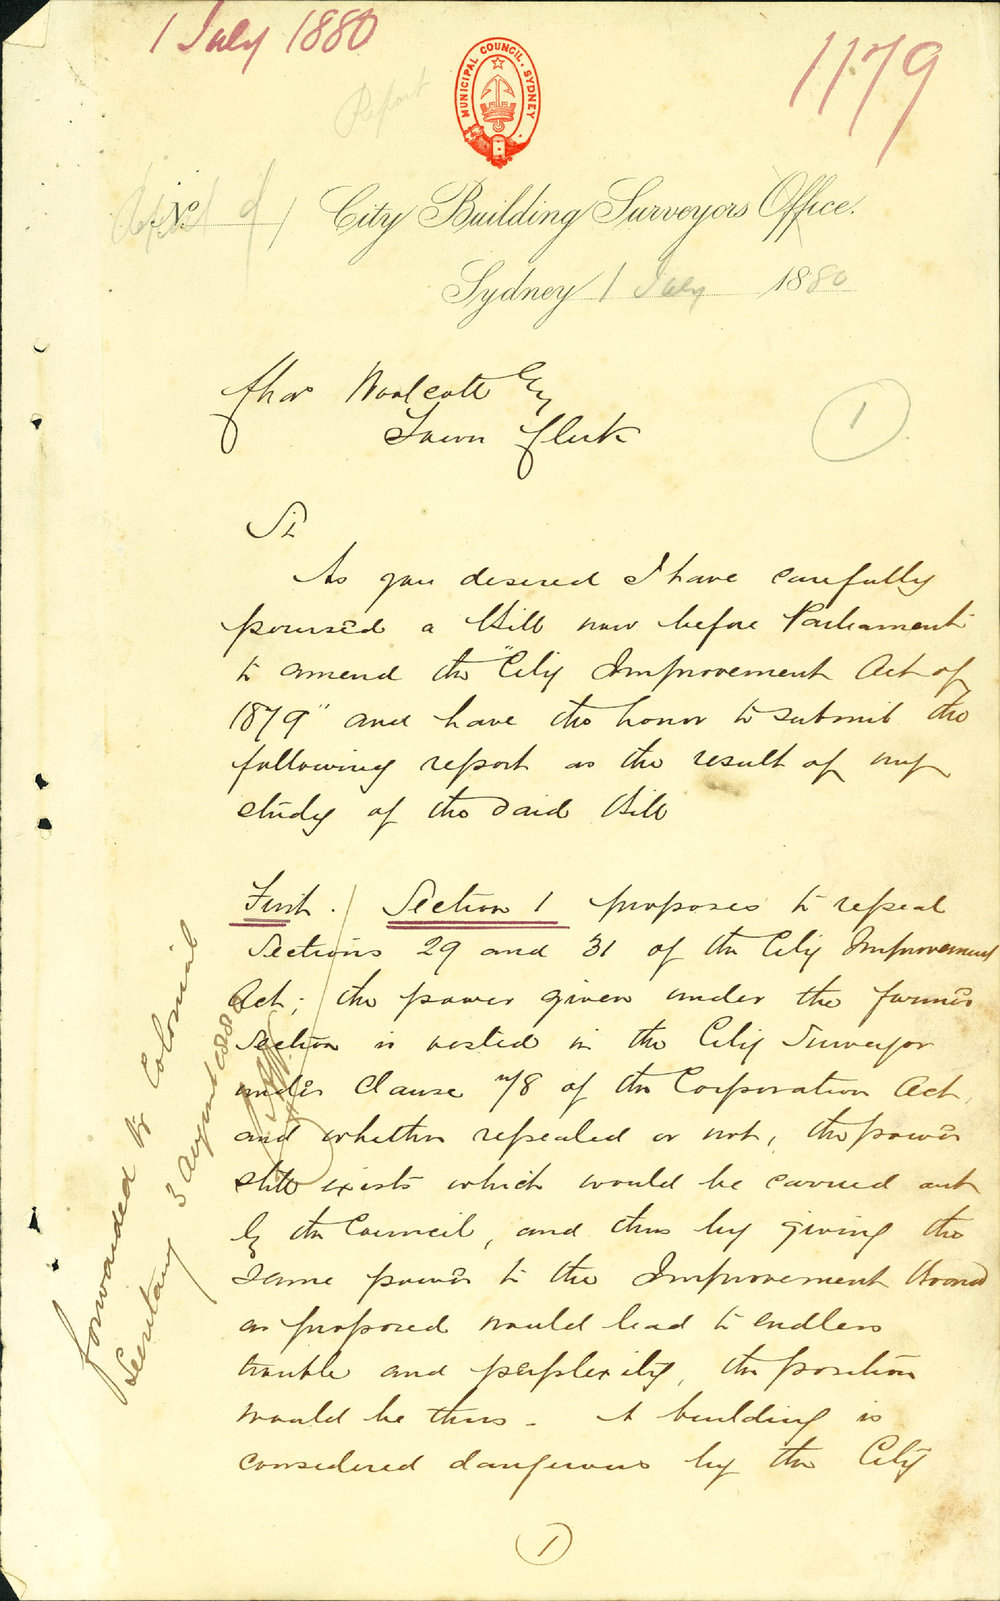 1 July 1880
1179
Report
MUNICIPAL COUNCIL. SYDNEY
No
City Building Surveyors Office.
Sydney 1 July 1880
Chas Woolcott Esq
Town Clerk
1
Sir
As you desired I have carefully
perused a Bill now before Parliament
to amend the "City Improvement Act of
1879" and have the honor to submit the
following report as the result of my
study of the said Bill
First. Section 1 proposes to repeal
Sections 29 and 31 of the City Improvement
Act; the power given under the former
Section is vested in the City Surveyor
under Clause 78 of the Corporation Act,
and whether repealed or not, the power
still exists which would be carried out
by the Council, and thus by giving the
same power to the Improvement Board
as proposed would lead to endless
trouble and perplexity, the position
would be thus - A building is
considered dangerous by the City
forwarded to Colonial
Secretary 3 August 1880
1